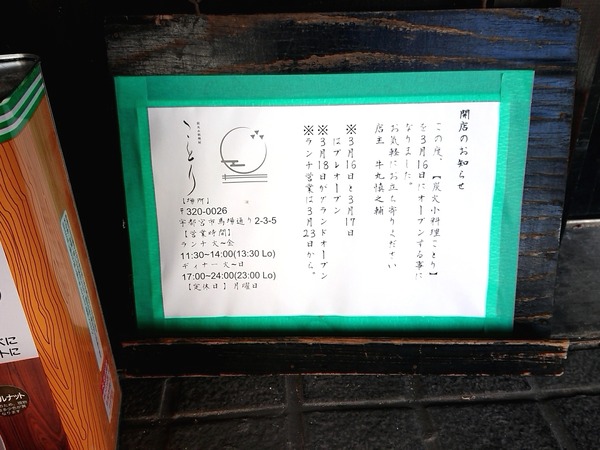 開店のお知らせ
この度、【炭火小料理ことり】
を3月16日にオープンする事に
なりました。
お気軽にお立ち寄りください
店主 牛丸慎之輔
※3月16日と3月17日
はプレオープン
※3月18日がグランドオープン
※ランチ営業は3月23日から。
炭火小料理
ことり
【場所】
〒320-0026
宇都宮市馬場通り2-3-5
【営業時間】
ランチ 火~金
11:30~14:00(13:30 Lo)
ディナー 火~日
17:00~24:00(23:00 Lo)
【定休日】月曜日
に
トに
ルナット